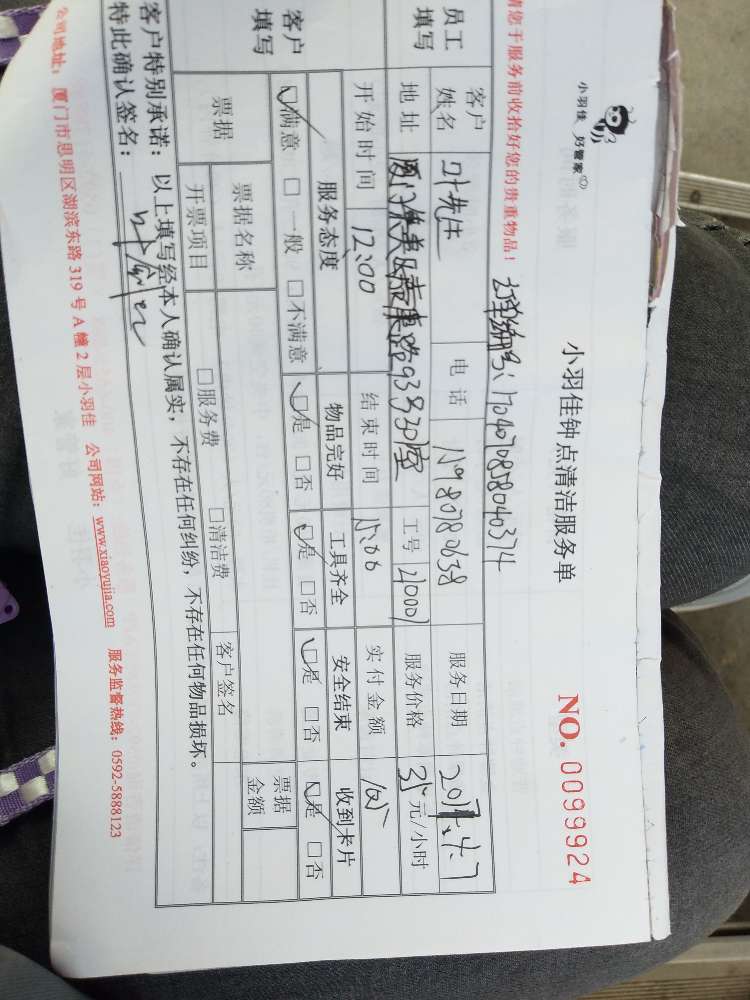 小羽佳 好管家
小羽佳钟点清洁服务单
NO. 0099924
请您于服务前收拾好您的贵重物品！
订单编号：1704070858040374
员工填写
客户姓名 叶先生 电话 15980780638 服务日期 2017.4.7
地址 厦门集美区 路93号301室 工号 21000 服务价格 35元/小时
开始时间 12:00 结束时间 15:00 实付金额 105
客户填写
服务态度 物品完好 工具齐全 安全结束 收到卡片
☑满意 □一般 □不满意 ☑是 □否 ☑是 □否 ☑是 □否 ☑是 □否
票据 票据名称 客户签名 票据金额
开票项目 □服务费 □清洁费
客户特别承诺：以上填写经本人确认属实，不存在任何纠纷，不存在任何物品损坏。
特此确认签名：
公司地址：厦门市思明区湖滨东路 319 号 A 幢 2 层小羽佳 公司网站：www.xiaoyujia.com 服务监督热线：0592-5888123